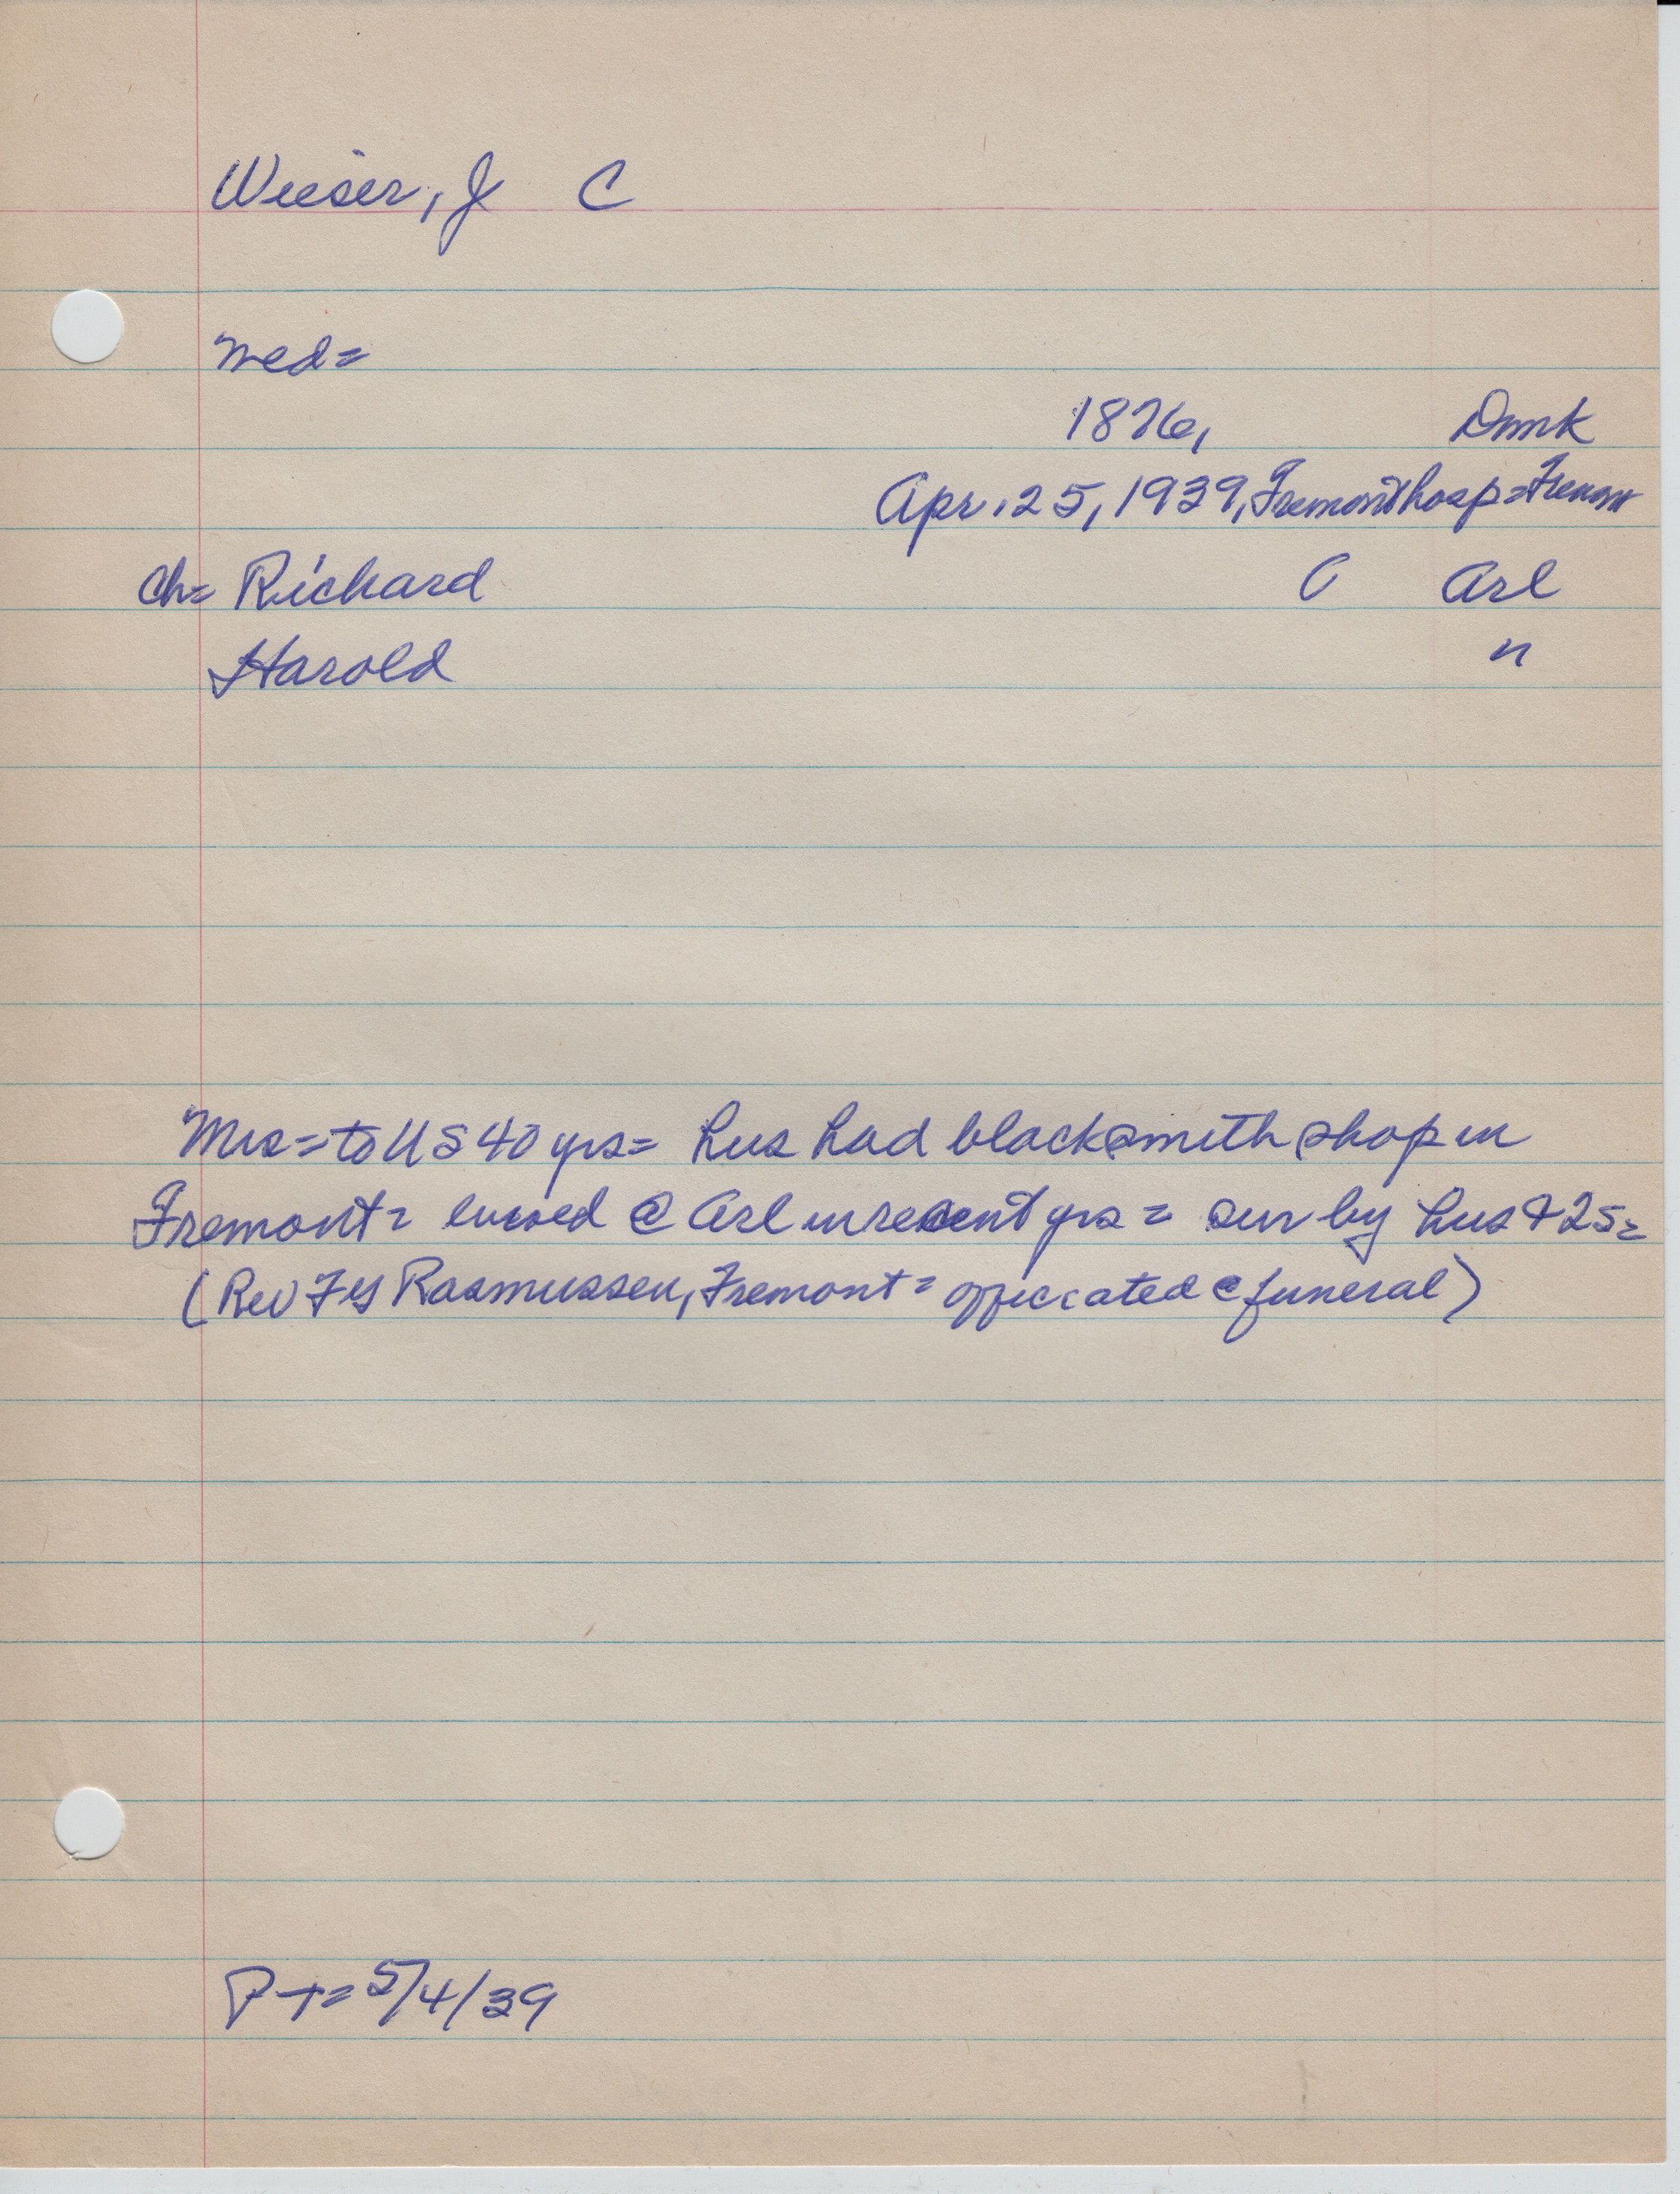 Wieser, J C
wed=
1876, Dnmk
Apr. 25, 1939, Fremont hosp = Fremont
ch= Richard O Arl
Harold "
Mrs = to US 40 yrs = hus had blacksmith shop in
Fremont = lived @ Arl in recent yrs = sur by hus & 2s =
(Rev Rasmussen, Fremont = officiated @ funeral)
P-T = 5/4/39